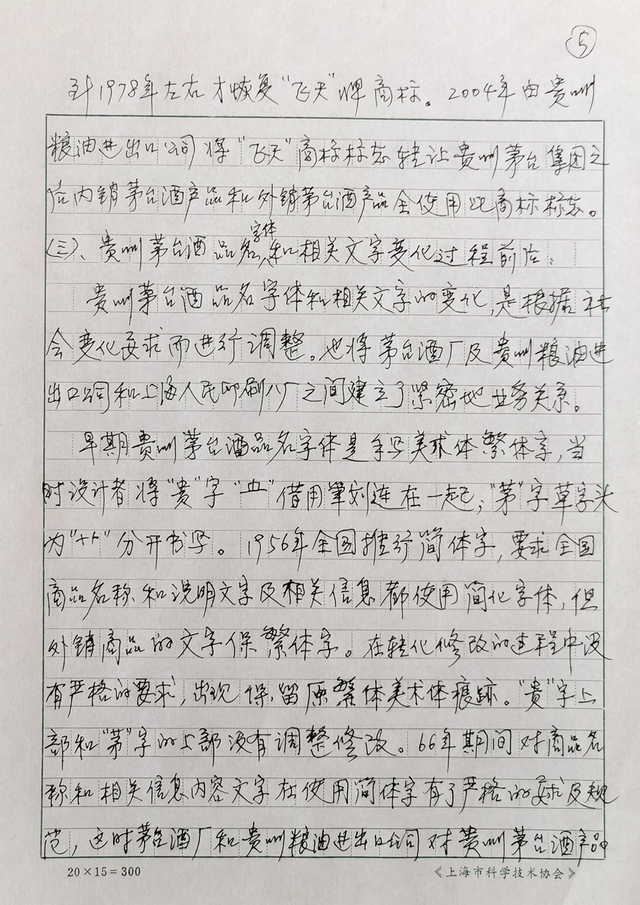 ⑤
到1978年左右才恢复"飞天"牌商标。2004年由贵州
粮油进出口公司将"飞天"商标标志转让贵州茅台集团之
后内销茅台酒产品和外销茅台酒产品全使用此商标标志。
(三)、贵州茅台酒品名字体和相关文字变化过程前后:
贵州茅台酒品名字体和相关文字的变化,是根据社
会变化要求而进行调整。也将茅台酒厂及贵州粮油进
出口公司和上海人民印刷八厂之间建立了紧密地业务关系。
早期贵州茅台酒品名字体是手写美术体繁体字,当
时设计者将"贵"字"䒑"借用笔划连在一起,"茅"字草字头
为"++"分开书写。1956年全国推行简体字,要求全国
商品名称和说明文字及相关信息都使用简化字体,但
外销商品的文字保繁体字。在转化修改的过程中没
有严格的要求,出现保留原繁体美术体痕跡。"贵"字上
部和"茅"字的上部没有调整修改。66年期间对商品名
称和相关信息内容文字在使用简体字有了严格的要求及规
范,这时茅台酒厂和贵州粮油进出口公司对贵州茅台酒产品
20×15=300
《上海市科学技术协会》